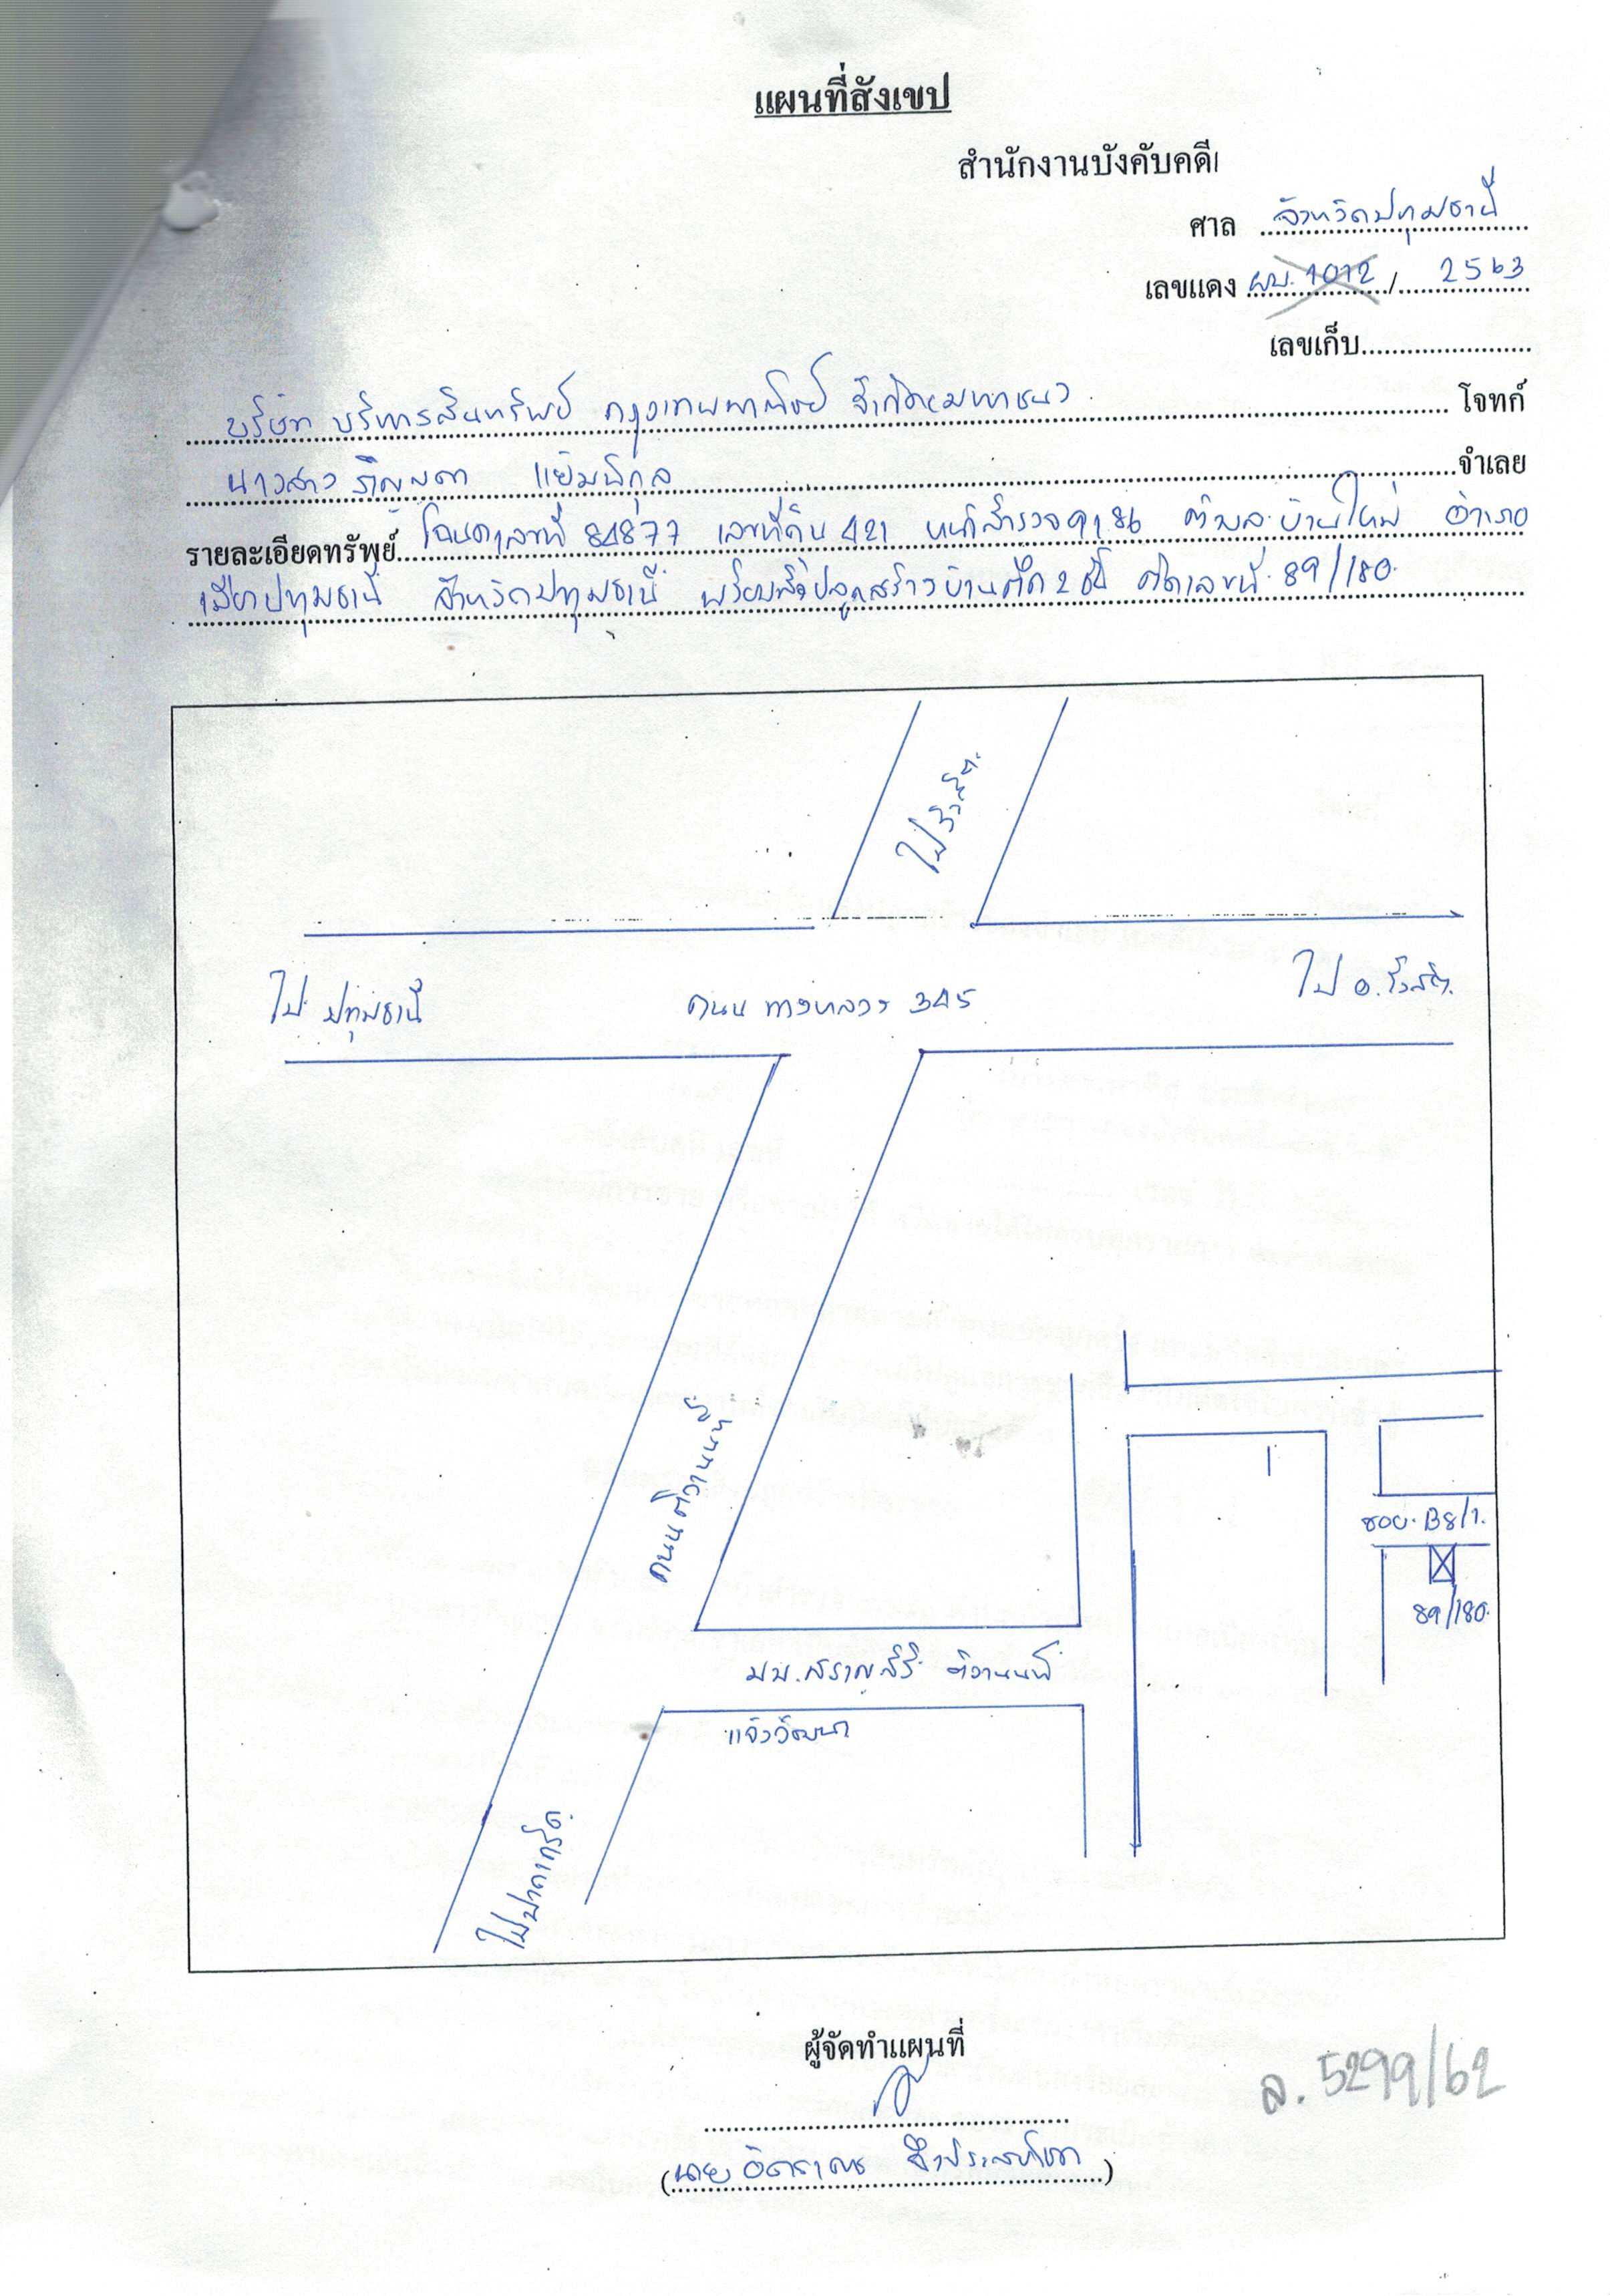 แผนที่สังเขป
สำนักงานบังคับคดี
ศาล จังหวัดปทุมธานี
เลขแดง ผบ. 1012 / 2563
เลขเก็บ
บริษัท บริหารสินทรัพย์ กรุงเทพพาณิชย์ จำกัด(มหาชน) โจทก์
นางสาว แย้มพิกุล จำเลย
รายละเอียดทรัพย์ โฉนดเลขที่ 84877 เลขที่ดิน 421 หน้าสำรวจ 9186 ตำบล บ้านใหม่ อำเภอ
เมืองปทุมธานี จังหวัดปทุมธานี พร้อมสิ่งปลูกสร้าง บ้านตึก 2 ชั้น ติดเลขที่ 89/180
ไปรังสิต
ไป ปทุมธานี
ถนน ทางหลวง 345
ไป อ.รังสิต
ถนน ติวานนท์
ซอย B8/1
89/180
มบ.สราญสิริ ติวานนท์
แจ้งวัฒนะ
ไปปากเกร็ด
ผู้จัดทำแผนที่
(นาย)
ล. 5299/62